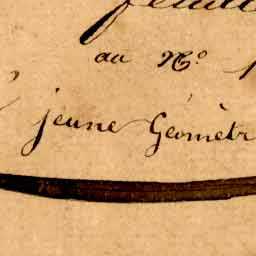 au N.º
jeune Géomètr